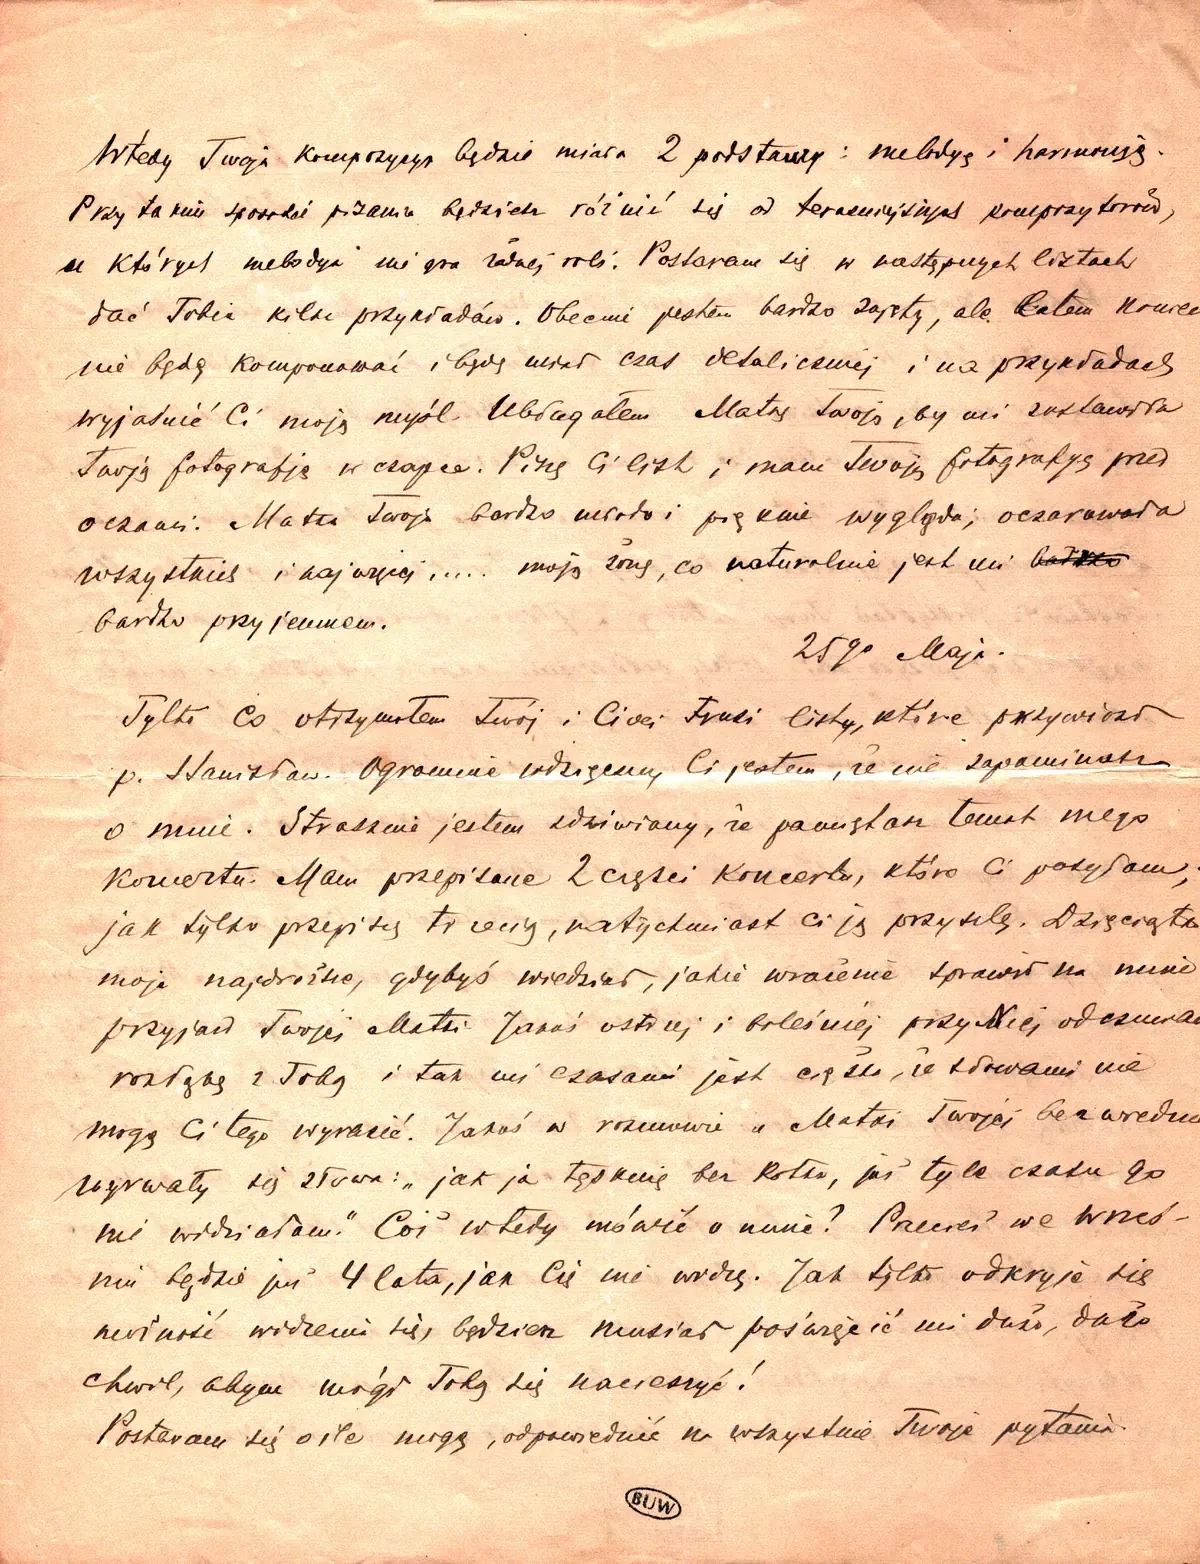 Wtedy Twoja kompozycya będzie miała 2 podstawy: melodyę i harmonję.
Przy takim sposobie pisania będziesz różnić się od terazniejszych kompozytorów,
u których melodya nie gra żadnej roli. Postaram się w następnych listach
dać Tobie kilka przykładów. Obecnie jestem bardzo zajęty, ale latem
nie będę komponować i będę miał czas detaliczniej i na przykładach
wyjaśnić Ci moją myśl. Ubłagałem Matkę Twoją, by mi zostawiła
Twoją fotografję w czapce. Piszę Ci list i mam Twoją fotografyę przed
oczami. Matka Twoja bardzo młodo i pięknie wygląda; oczarowała
wszystkich i najwięcej..... moją żonę, co naturalnie jest mi bardzo
bardzo przyjemnem.
25go Maja.
Tylko co otrzymałem Twój i Cioci Frusi listy, które przywiózł
p. Stanisław. Ogromnie wdzięczny Ci jestem, że nie zapominasz
o mnie. Strasznie jestem zdziwiony, że pamiętasz temat mego
koncertu. Mam przepisane 2 części koncertu, które Ci posyłam;
jak tylko przepiszę trzecią, natychmiast Ci ją przyszlę. Dzieciątko
moje najdroższe, gdybyś wiedział, jakie wrażenie sprawił na mnie
przyjazd Twojej Matki. Jakoś ostrzej i boleśniej przy Niej odczuwam
rozłąkę z Tobą i tak mi czasami jest ciężko, że słowami nie
mogę Ci tego wyrazić. Jakoś w rozmowie u Matki Twojej bezwiednie
wyrwały się słowa: „jak ja tęsknię bez Kotka, już tyle czasu go
nie widziałam." Cóż wtedy mówić o mnie? Przecież we wrześ-
niu będzie już 4 lata, jak Cię nie widzę. Jak tylko odkryje się
możność widzenia się, będziesz musiał poświęcić mi dużo, dużo
chwil, abym mógł Tobą się nacieszyć!
Postaram się o ile mogę, odpowiedzieć na wszystkie Twoje pytania.
BUW